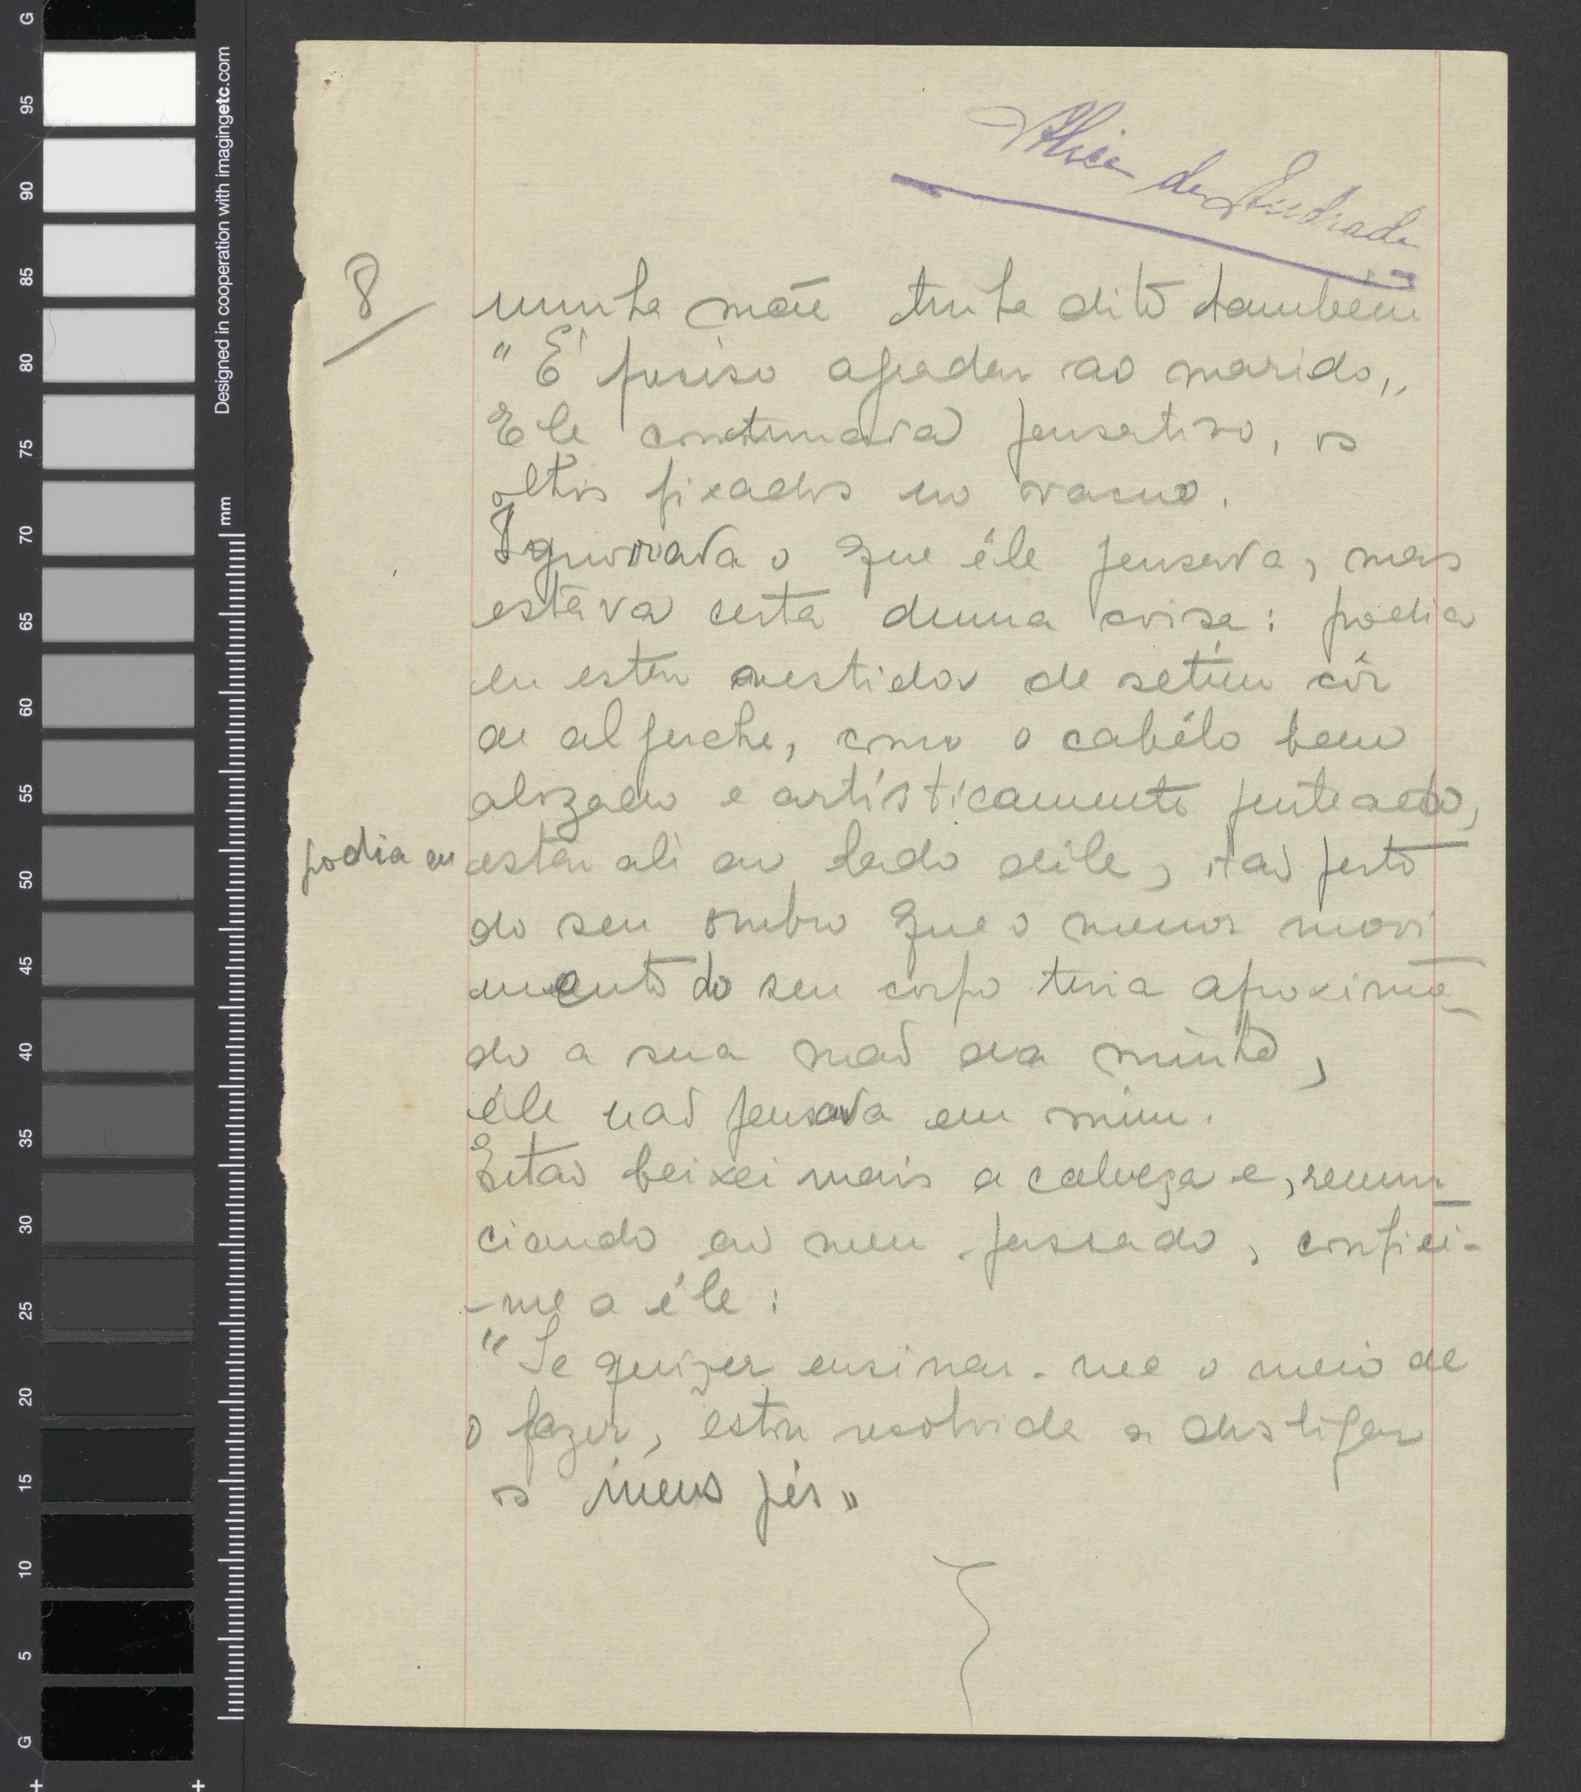 Alice de Andrade
8
minha mãe tinha dito tambem
"E' preciso agradar ao marido,,
Ele continuava pensativo, os
olhos fixados no vacuo.
Ignorava o que êle pensava, mas
estava certa duma coisa: podia
eu estar vestida de setim côr
de alperche, como o cabêlo bem
alizado e artísticamente penteado,
podia eu estar ali ao lado dêle, tao perto
do seu ombro que o menor movi
mento do seu corpo teria aproxima-
do a sua mao da minha,
êle nao pensava em mim.
Entao baixei mais a cabeça e, renun
ciando ao meu passado, confiei-
-me a êle:
"Se quizer ensinar-me o meio de
o fazer, estou resolvida a desligar
os meus pés"
G
95
90
85
80
75
70
65
60
55
50
45
40
35
30
25
20
15
10
5
G
mm
Designed in cooperation with imagingetc.com